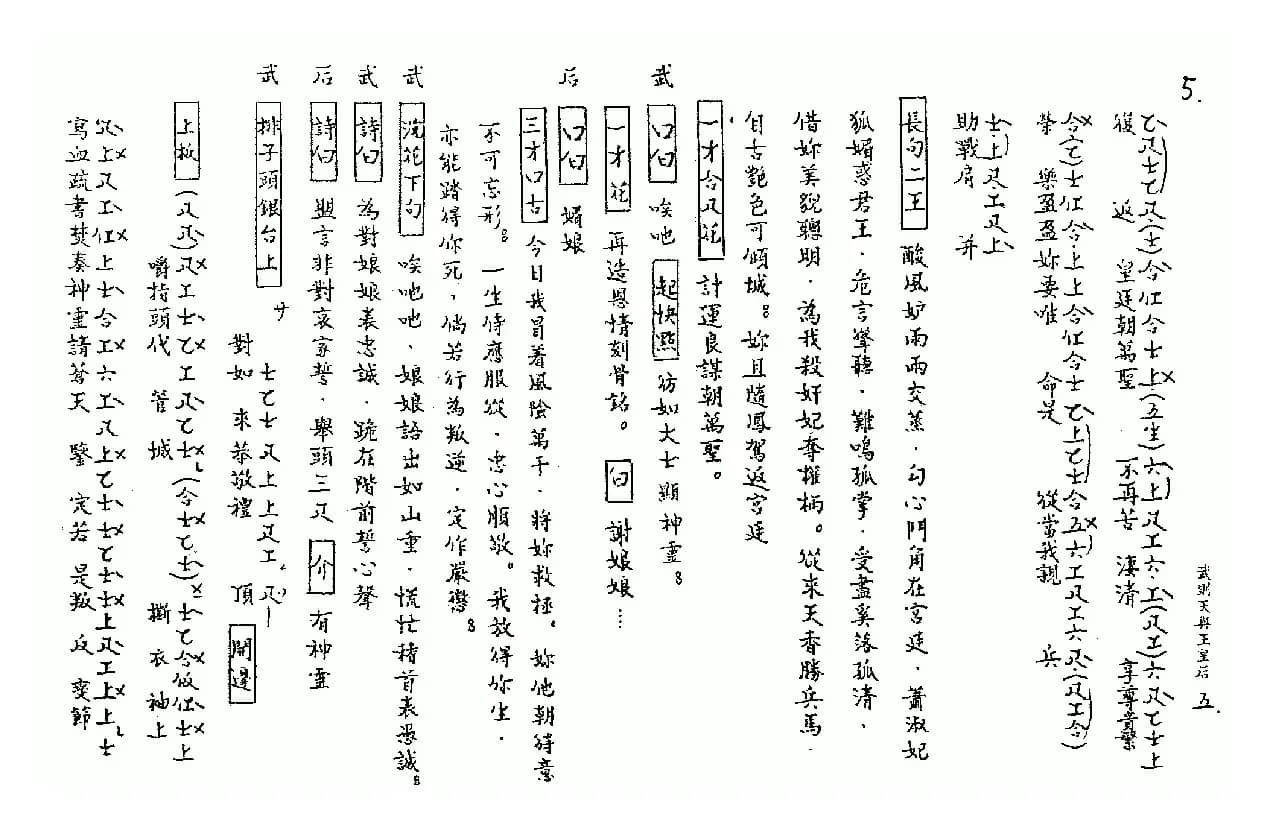 5.
武則天與王皇后 五.
乙尺士乙尺(士)合仩合士上(五生)六上尺工六.工(尺工)六尺乙士上
復 返 皇廷朝萬聖 不再苦 淒清 享尊貴繁
合(乙)士仩合.上上合仩合士乙上乙士合五六工尺工六尺.(尺工合)
榮 樂盈盈妳要唯 命是 從當我親 兵
士上尺工尺上
助戰肩 并
長句二王 酸風妒雨兩交蒸.勾心鬥角在宮廷.蕭淑妃
狐媚惑君王.危言聳聽.難鳴孤掌.受盡奚落孤清.
借妳美貌聰明.為我殺奸妃奪權柄。從來天香勝兵馬.
自古艷色可傾城。妳且隨鳳駕返宮廷
一才合尺花 計運良謀朝萬聖。
武 口白 唉吔 起快點 彷如大士顯神靈。
一才花 再造恩情刻骨銘。 白 謝娘娘……
后 口白 媚娘
三才口古 今日我冒着風險萬千.將妳救拯。妳他朝得意
不可忘形。一生侍應服從.忠心順敬。我放得你生.
亦能踏得你死.倘若行為叛逆.定作嚴懲。
武 浣花下句 唉吔吔.娘娘語出如山重.慌忙稽首表憑誠。
武 詩白 為對娘娘表忠誠.跪在階前誓心聲
后 詩白 盟言非對哀家誓.舉頭三尺 介 有神靈
武 排子頭銀台上 サ 士乙士尺上上尺工.尺
對如 來恭敬禮 頂 開邊
上板 (尺尺)尺工士乙工尺乙士(合士乙士)士乙合仮仩士上
嚼持頭代 管城 撕 衣袖上
尺上尺工仩上士合工六工尺上乙士士乙士士上尺工上上士
寫血疏書焚奏神靈請蒼天 鑒 定若 是叛 反 變節